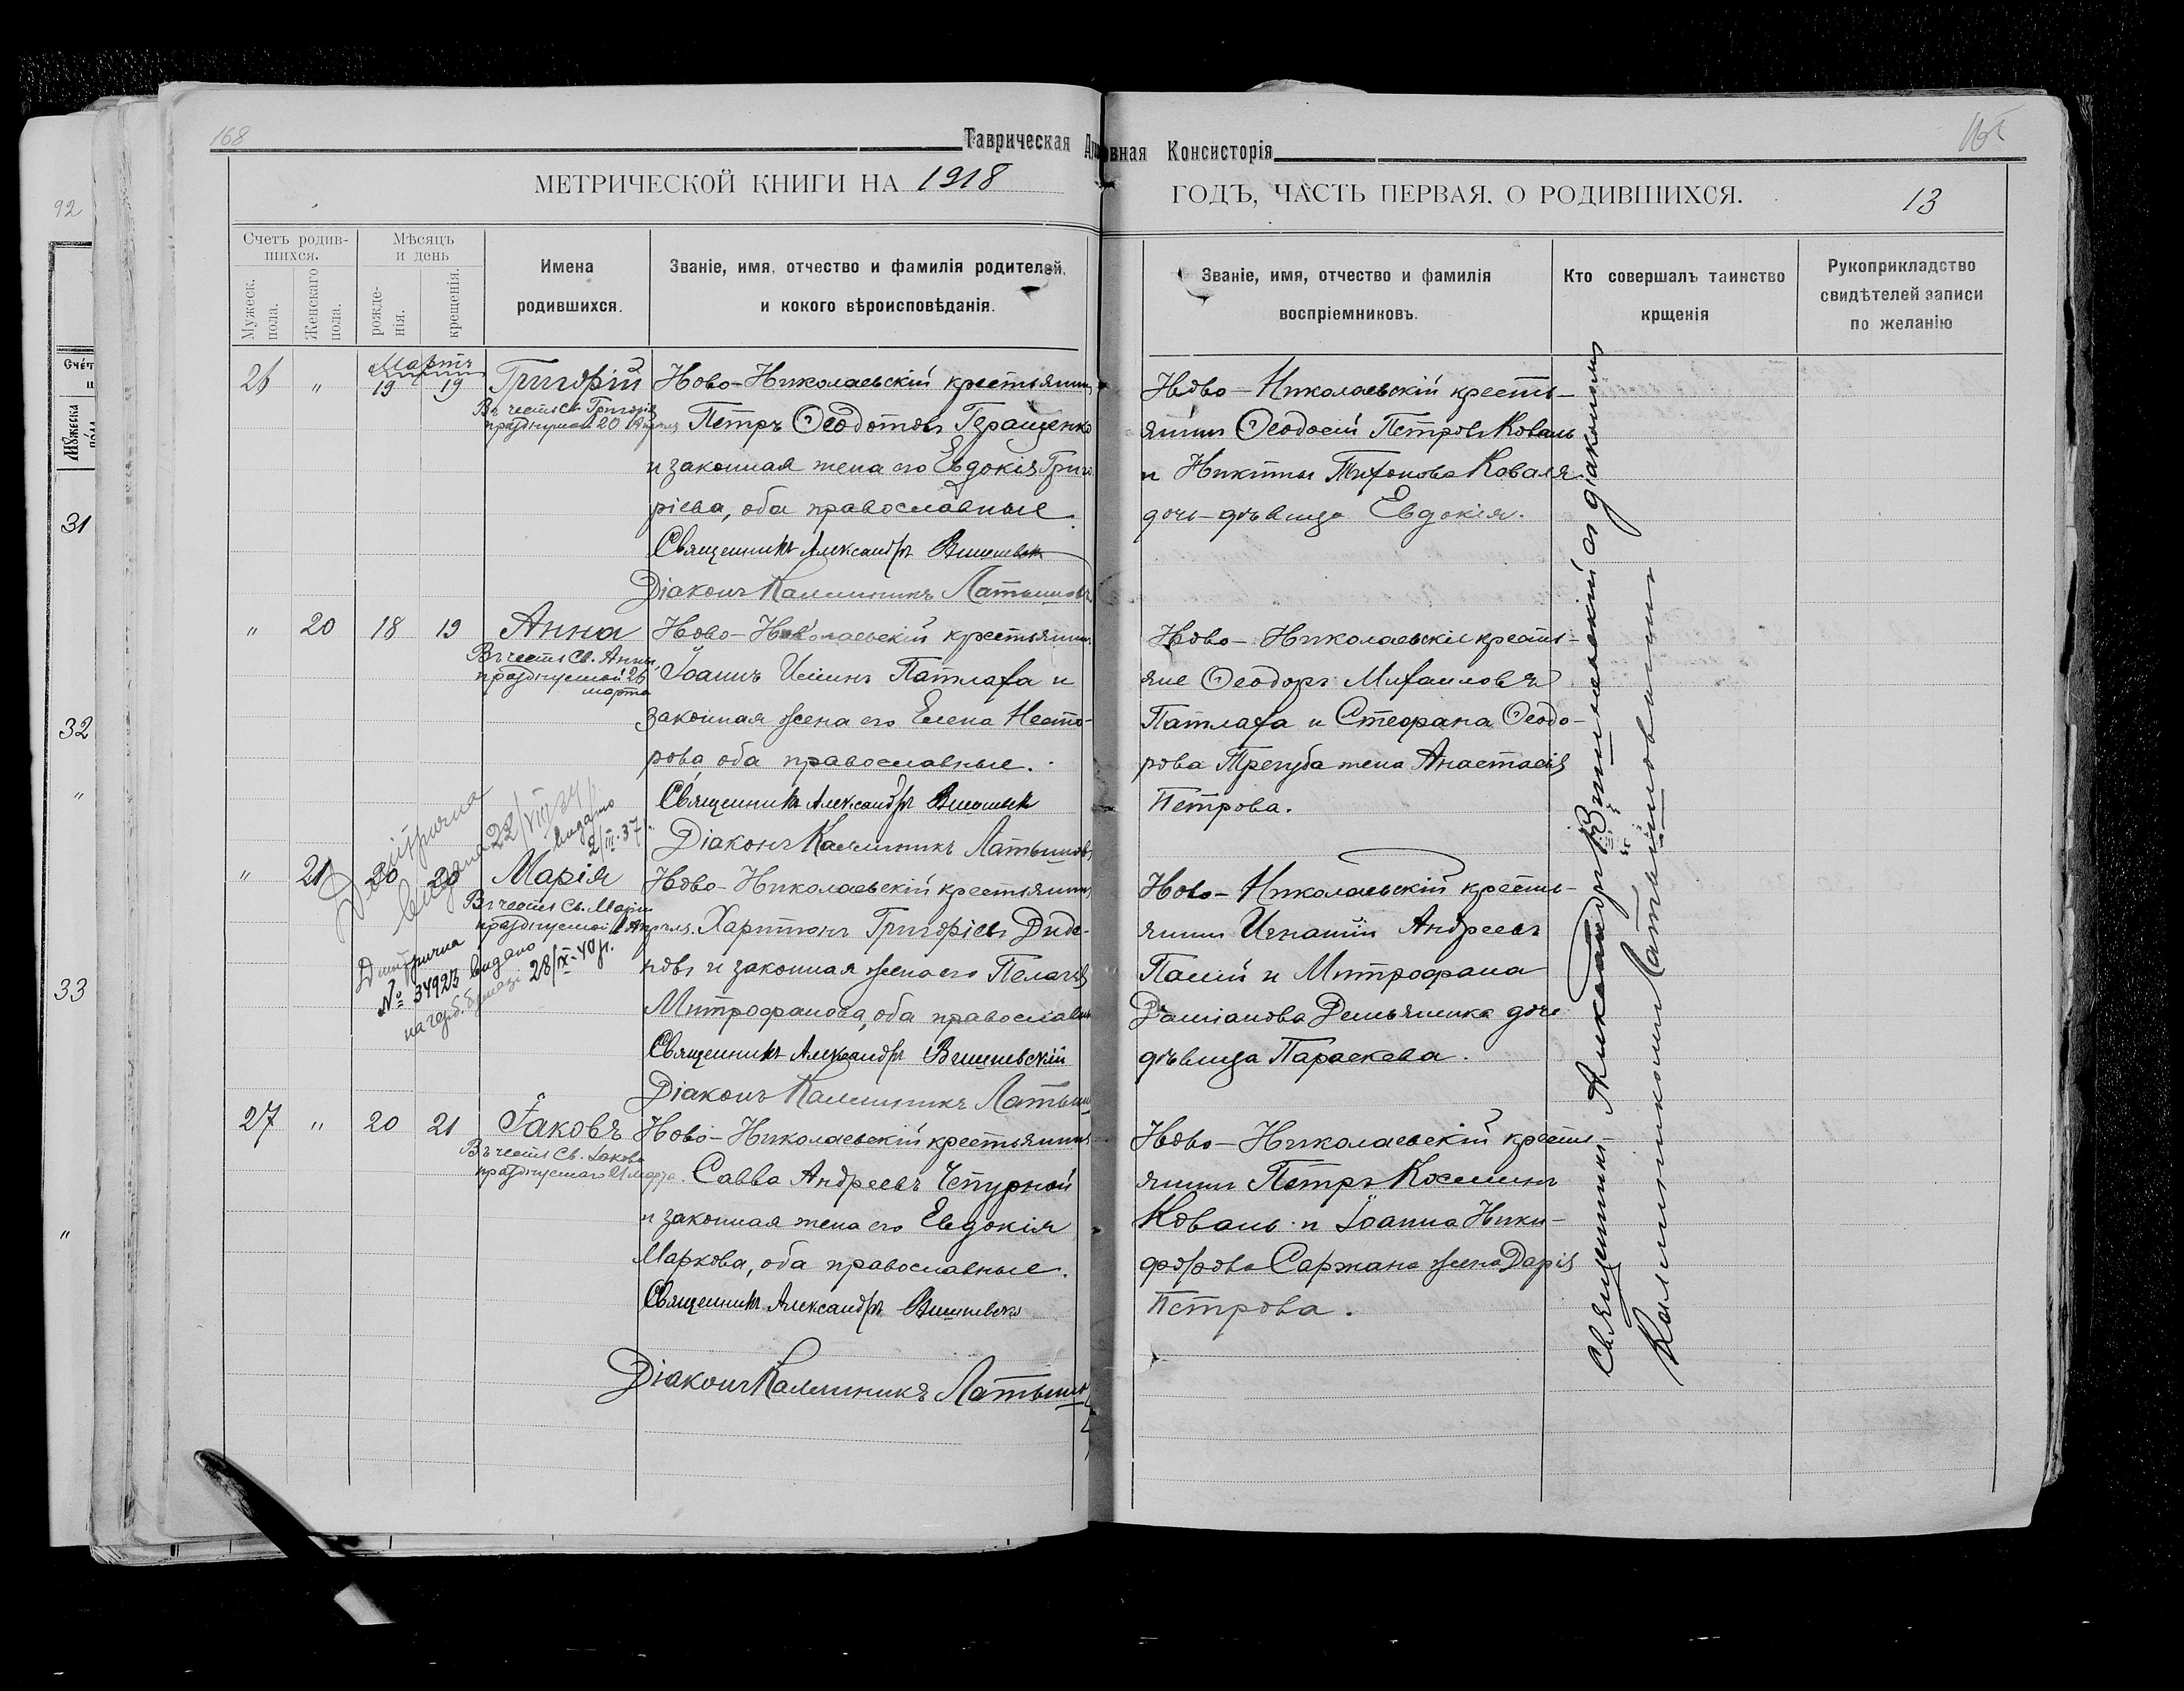 168
Таврическая Духовная Консисторія
МЕТРИЧЕСКОЙ КНИГИ НА 1918
ГОДЪ, ЧАСТЬ ПЕРВАЯ, О РОДИВШИХСЯ.
13
92
Счетъ родив-
шихся.
Мужеск.
пола.
Женскаго
пола.
Мѣсяцъ
и день
рожде-
нія.
крещенія.
Имена
родившихся.
Званіе, имя, отчество и фамилія родителей,
и кокого вѣроисповѣданія.
Званіе, имя, отчество и фамилія
воспріемниковъ.
Кто совершалъ таинство
крщенія
Рукоприкладство
свидѣтелей записи
по желанію
31
32
"
33
"
Мартъ
26 " 19 19 Григорій
Въ честь Св. Григорія
празднуемой 20 Апреля
Ново-Николаевскій крестьянинъ
Петръ Ѳеодотовъ Геращенко
и законная жена его Евдокія Григо
ріева, оба православные.
Священникъ Александръ Вишневск
Діаконъ Каллиникъ Латышовъ
Ново-Николаевскій кресть-
янинъ Ѳеодосій Петровъ Коваль
и Никиты Тихонова Коваля
дочь-дѣвица Евдокія.
" 20 18 19 Анна
Въ честь Св. Анны,
празднуемой 26
марта
Ново-Николаевскій крестьянинъ
Іоаннъ Ильинъ Патлаха и
законная жена его Елена Несто-
рова, оба православные.
Священникъ Александръ Вишневск
Діаконъ Каллиникъ Латышовъ
Ново-Николаевскіе кресть-
яне Ѳеодоръ Михаиловъ
Патлаха и Стефана Ѳеодо-
рова Трегуба жена Анастасія
Петрова.
" 21 20 20 Марія
видано
2/III-37
видана 22/VII
Въ честь Св. Маріи
празднуемой 1 Апреля.
Ново-Николаевскій крестьянинъ
Харитонъ Григоріевъ Диде-
новъ и законная жена его Пелагія
Митрофанова, оба православн
Священникъ Александръ Вишневскій
Діаконъ Каллиникъ Латыш
№ 34923 видано
28/IX-40 р.
Ново-Николаевскій кресть-
янинъ Игнатій Андреевъ
Палій и Митрофана
Даміанова Демьяненка дочь
дѣвица Параскева.
27 " 20 21 Іаковъ
Въ честь Св. Іакова
празднуемаго 21 марта.
Ново-Николаевскій крестьянинъ
Савва Андреевъ Чепурной
и законная жена его Евдокія
Маркова, оба православные.
Священникъ Александръ Вишневск
Діаконъ Каллиникъ Латышовъ
Ново-Николаевскій кресть-
янинъ Петръ Косминъ
Коваль и Іоанна Ники-
форова Саржана жена Дарія
Петрова.
Священникъ Александръ Вишневскій съ діакономъ
Каллиникомъ Латышовымъ